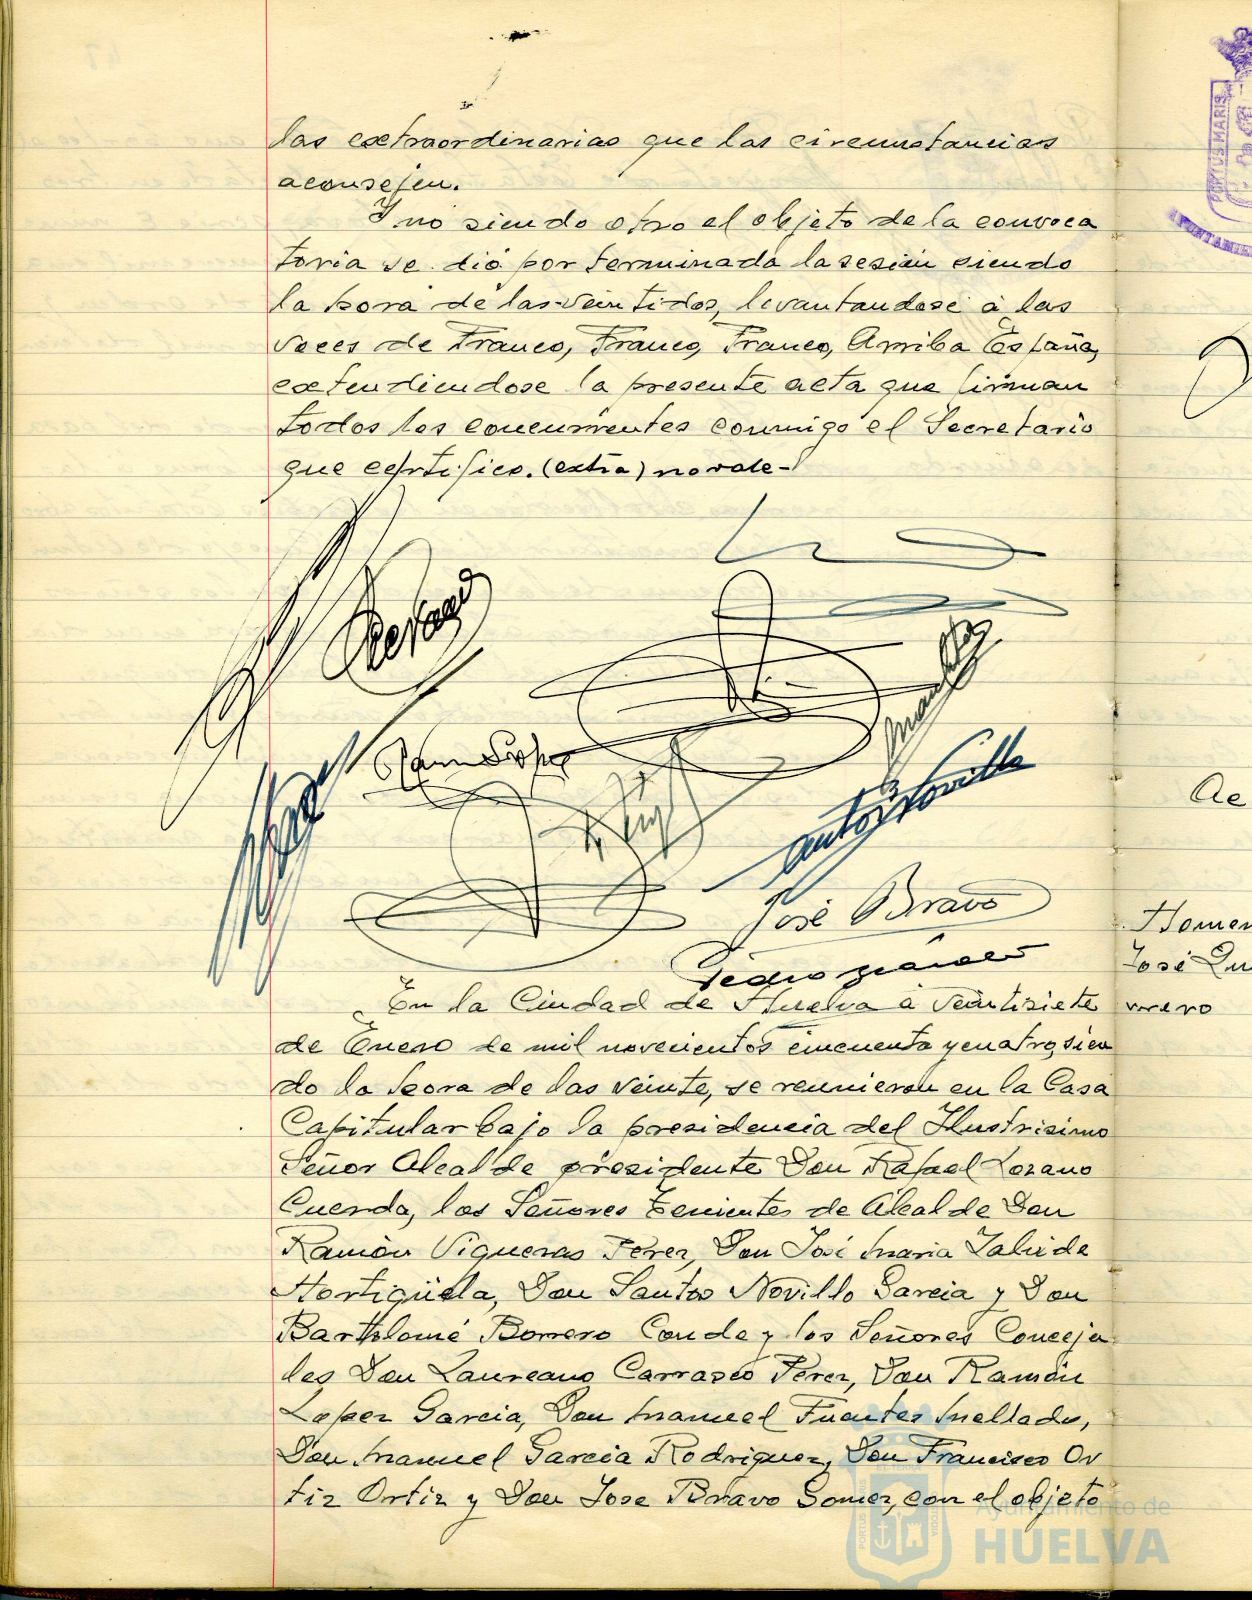 las extraordinarias que las circunstancias
aconsejen.
Y no siendo otro el objeto de la convoca
toria se dió por terminada la sesión siendo
la hora de las veintidos, levantandose a las
voces de Franco, Franco, Franco, Arriba España,
extendiendose la presente acta que firman
todos los concurrentes conmigo el Secretario
que certifico. (extra) no vale-
Ramon Lopez
José Bravo
En la Ciudad de Huelva a veintisiete
de Enero de mil novecientos cincuenta y cuatro, sien
do la hora de las veinte, se reunieron en la Casa
Capitular bajo la presidencia del Ilustrisimo
Señor Alcalde presidente Don Rafael Lozano
Cuerda, los Señores Tenientes de Alcalde Don
Ramón Vigueras Perez, Don José Maria Zalvide
Hortigüela, Don Santos Novillo Garcia y Don
Bartolomé Borrero Conde y los Señores Conceja
les Don Laureano Carrasco Perez, Don Ramón
Lopez Garcia, Don Manuel Fuentes Mellado,
Don Manuel Garcia Rodriguez, Don Francisco Or
tiz Ortiz y Don Jose Bravo Gomez, con el objeto
Ayuntamiento de
HUELVA
PORTUS MARIS
Ac
Homen
José